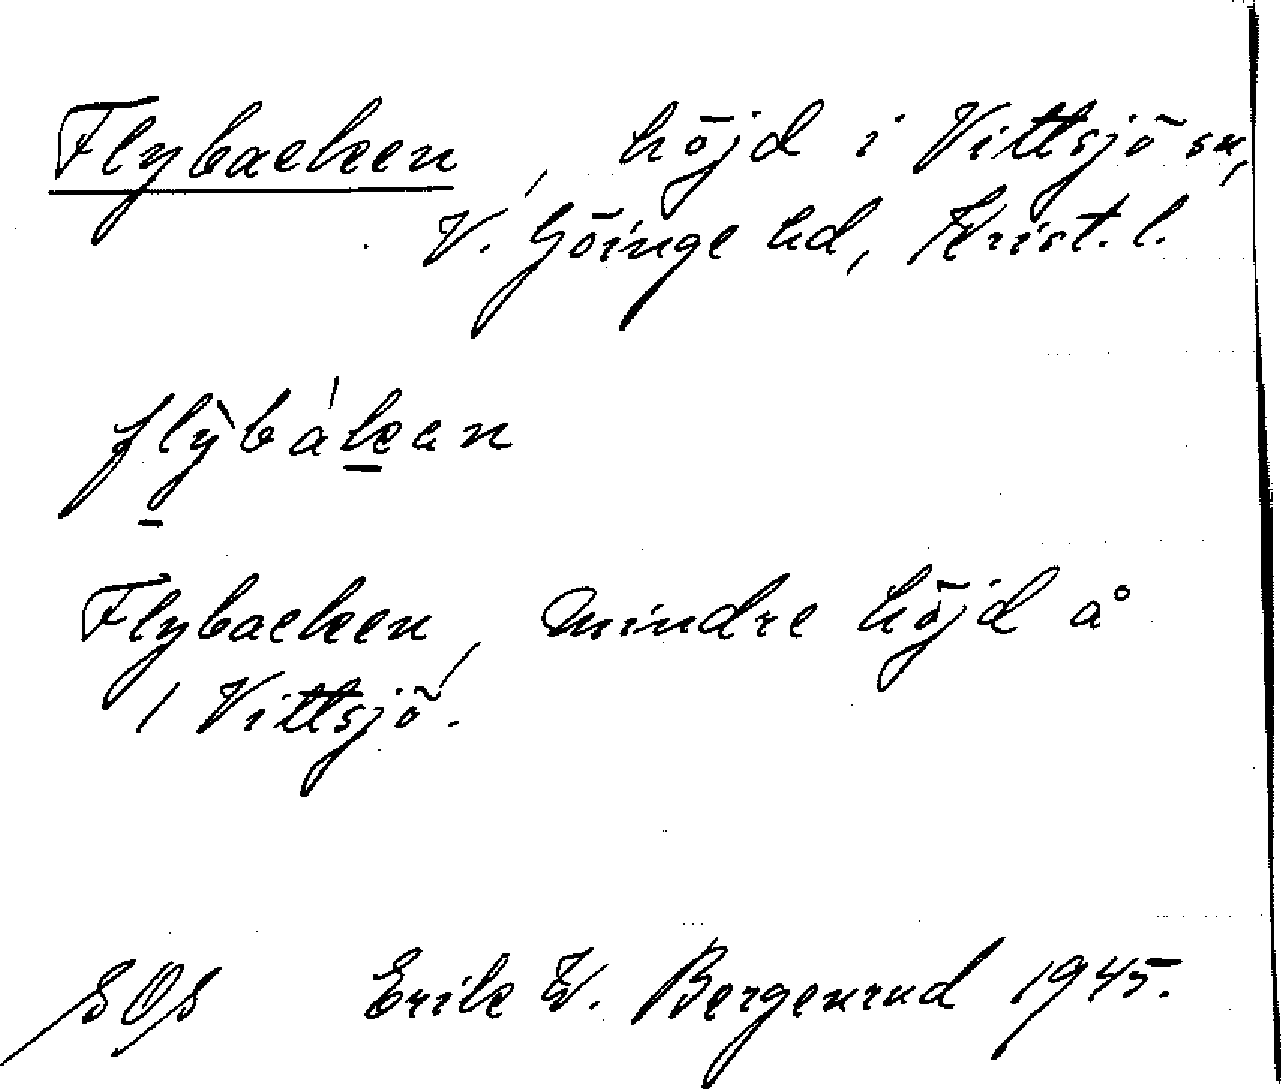 Flybacken, höjd i Vittsjö sn,
V. Göinge hd, Krist. l.
flỳbákan
Flybacken, mindre höjd å
1 Vittsjö.
SOS Erik W. Bergenrud 1945.